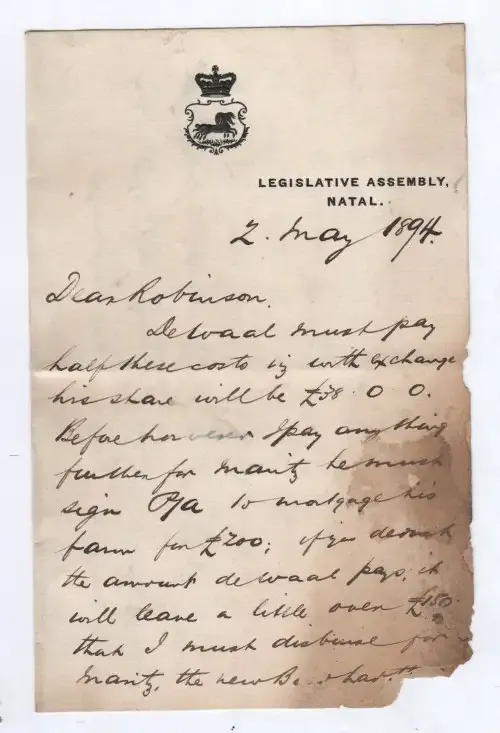 LEGISLATIVE ASSEMBLY,
NATAL.
2. May 1894.
Dear Robinson.
De Waal must pay
half these costs viz with exchange
his share will be £38 0 0.
Before however I pay anything
further for Maritz he must
sign P/A to mortgage his
farm for £200; if you deduct
the amount de Waal pays, it
will leave a little over £150
that I must disburse for
Maritz, the new B